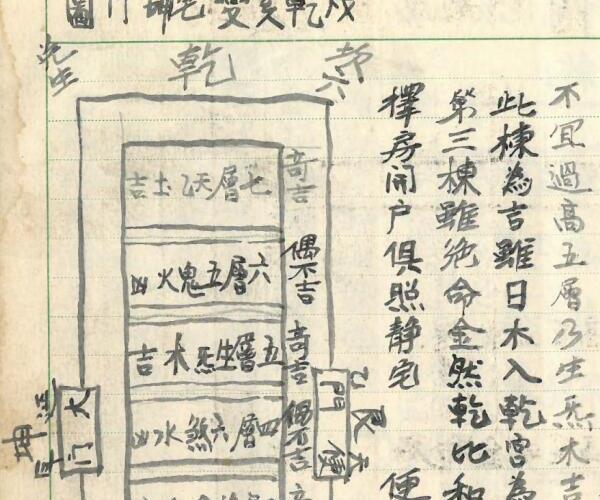 戌乾亥變宅坤門圖
不宜過高五層乃生炁木吉
此棟為吉雖日木入乾宮為
第三棟雖絶命金然乾比和
擇房開户俱照靜宅
便
乾
奇吉
七層天乙土吉
偶不吉
六層五鬼火凶
奇吉
五層生炁木吉
偶不吉
四層六煞水凶
門便
艮
大门
坤